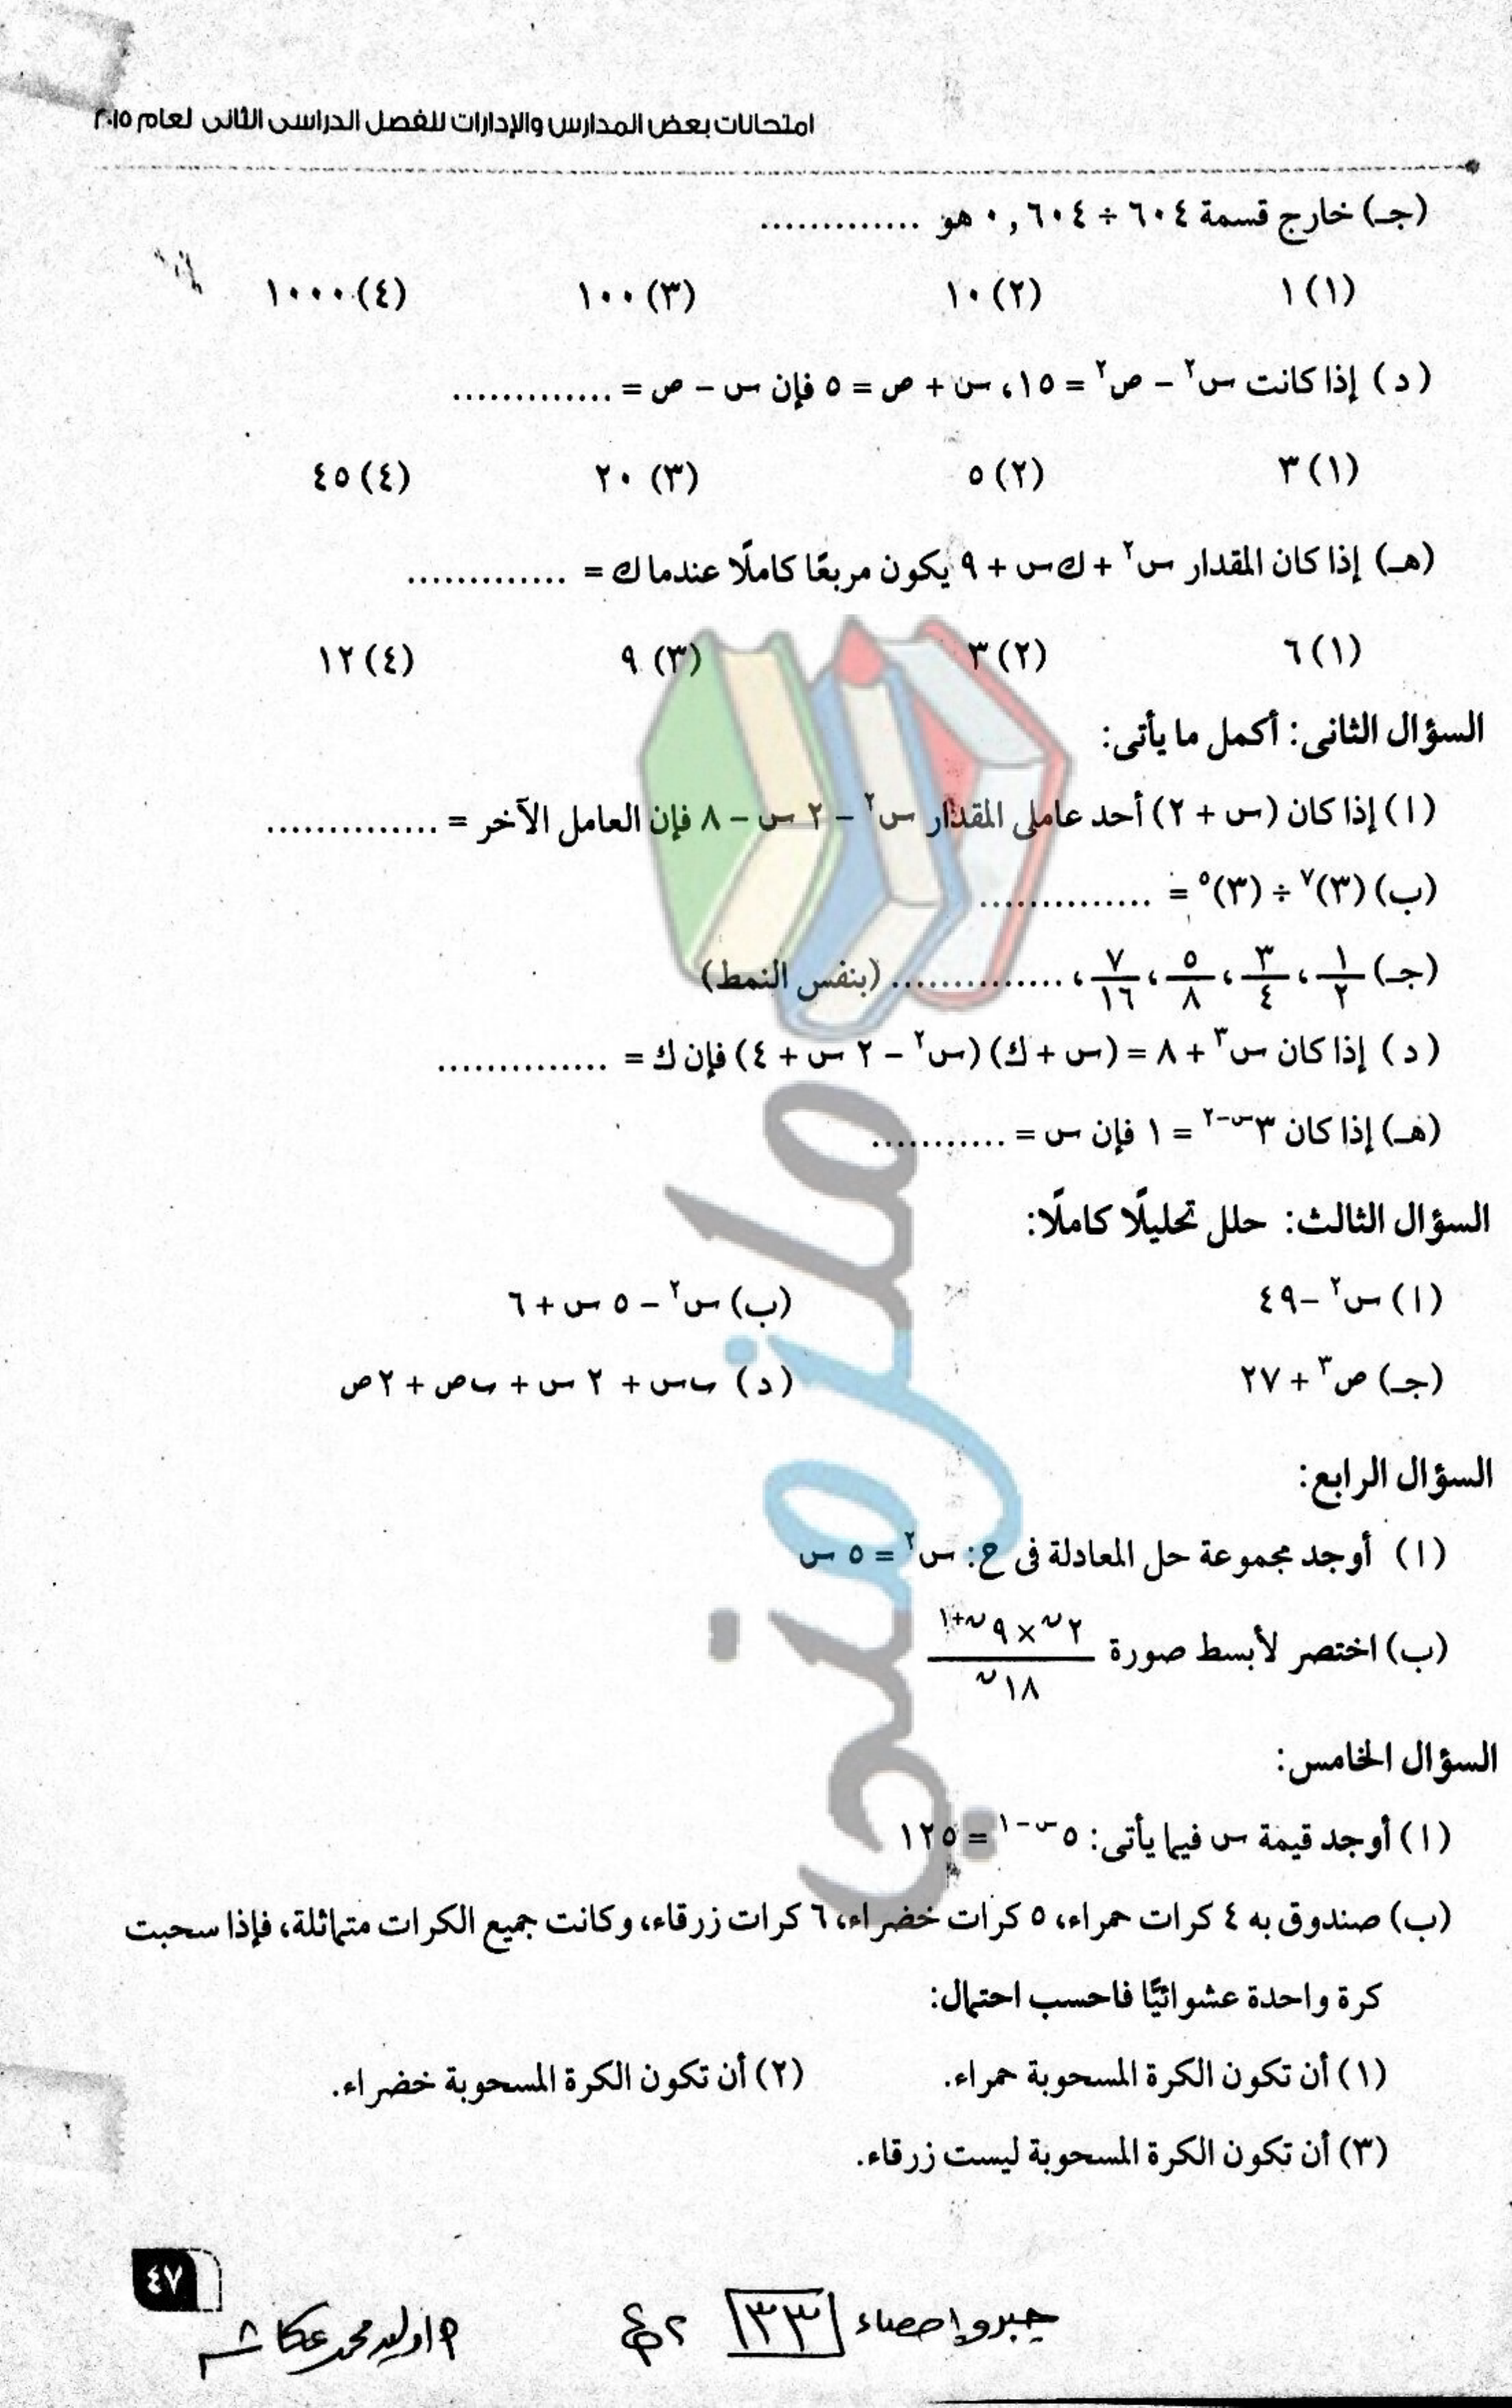 امتحانات بعض المدارس والإدارات للفصل الدراسى الثانى لعام ٢٠١٥
(جـ) خارج قسمة ٦٠٤ ÷ ٠,٦٠٤ هو .............
(١) ١ (٢) ١٠ (٣) ١٠٠ (٤) ١٠٠٠
(د) إذا كانت س² - ص² = ١٥، س + ص = ٥ فإن س - ص = .............
(١) ٣ (٢) ٥ (٣) ٢٠ (٤) ٤٥
(هـ) إذا كان المقدار س² + ك س + ٩ يكون مربعًا كاملًا عندما ك = .............
(١) ٦ (٢) ٣ (٣) ٩ (٤) ١٢
السؤال الثانى: أكمل ما يأتى:
(أ) إذا كان (س + ٢) أحد عاملى المقدار س² - ٢ س - ٨ فإن العامل الآخر = ..............
(ب) (٣)⁷ ÷ (٣)⁵ = ..............
(جـ) ١/٢ ، ٣/٤ ، ٥/٨ ، ٧/١٦ ، .............. (بنفس النمط)
(د) إذا كان س³ + ٨ = (س + ك) (س² - ٢ س + ٤) فإن ك = ..............
(هـ) إذا كان ٣^(س-٢) = ١ فإن س = ...........
السؤال الثالث: حلل تحليلًا كاملًا:
(أ) س² - ٤٩ (ب) س² - ٥ س + ٦
(جـ) ص³ + ٢٧ (د) ب س + ٢ س + ب ص + ٢ ص
السؤال الرابع:
(أ) أوجد مجموعة حل المعادلة فى ح: س² = ٥ س
(ب) اختصر لأبسط صورة ٢^ن × ٩^(ن+١) / ١٨^ن
السؤال الخامس:
(أ) أوجد قيمة س فيما يأتى: ٥^(س-١) = ١٢٥
(ب) صندوق به ٤ كرات حمراء، ٥ كرات خضراء، ٦ كرات زرقاء، وكانت جميع الكرات متماثلة، فإذا سحبت
كرة واحدة عشوائيًّا فاحسب احتمال:
(١) أن تكون الكرة المسحوبة حمراء. (٢) أن تكون الكرة المسحوبة خضراء.
(٣) أن تكون الكرة المسحوبة ليست زرقاء.
٤٧
جبر وإحصاء ٣٣ ٢ع أ/وليد محمد عكاشه